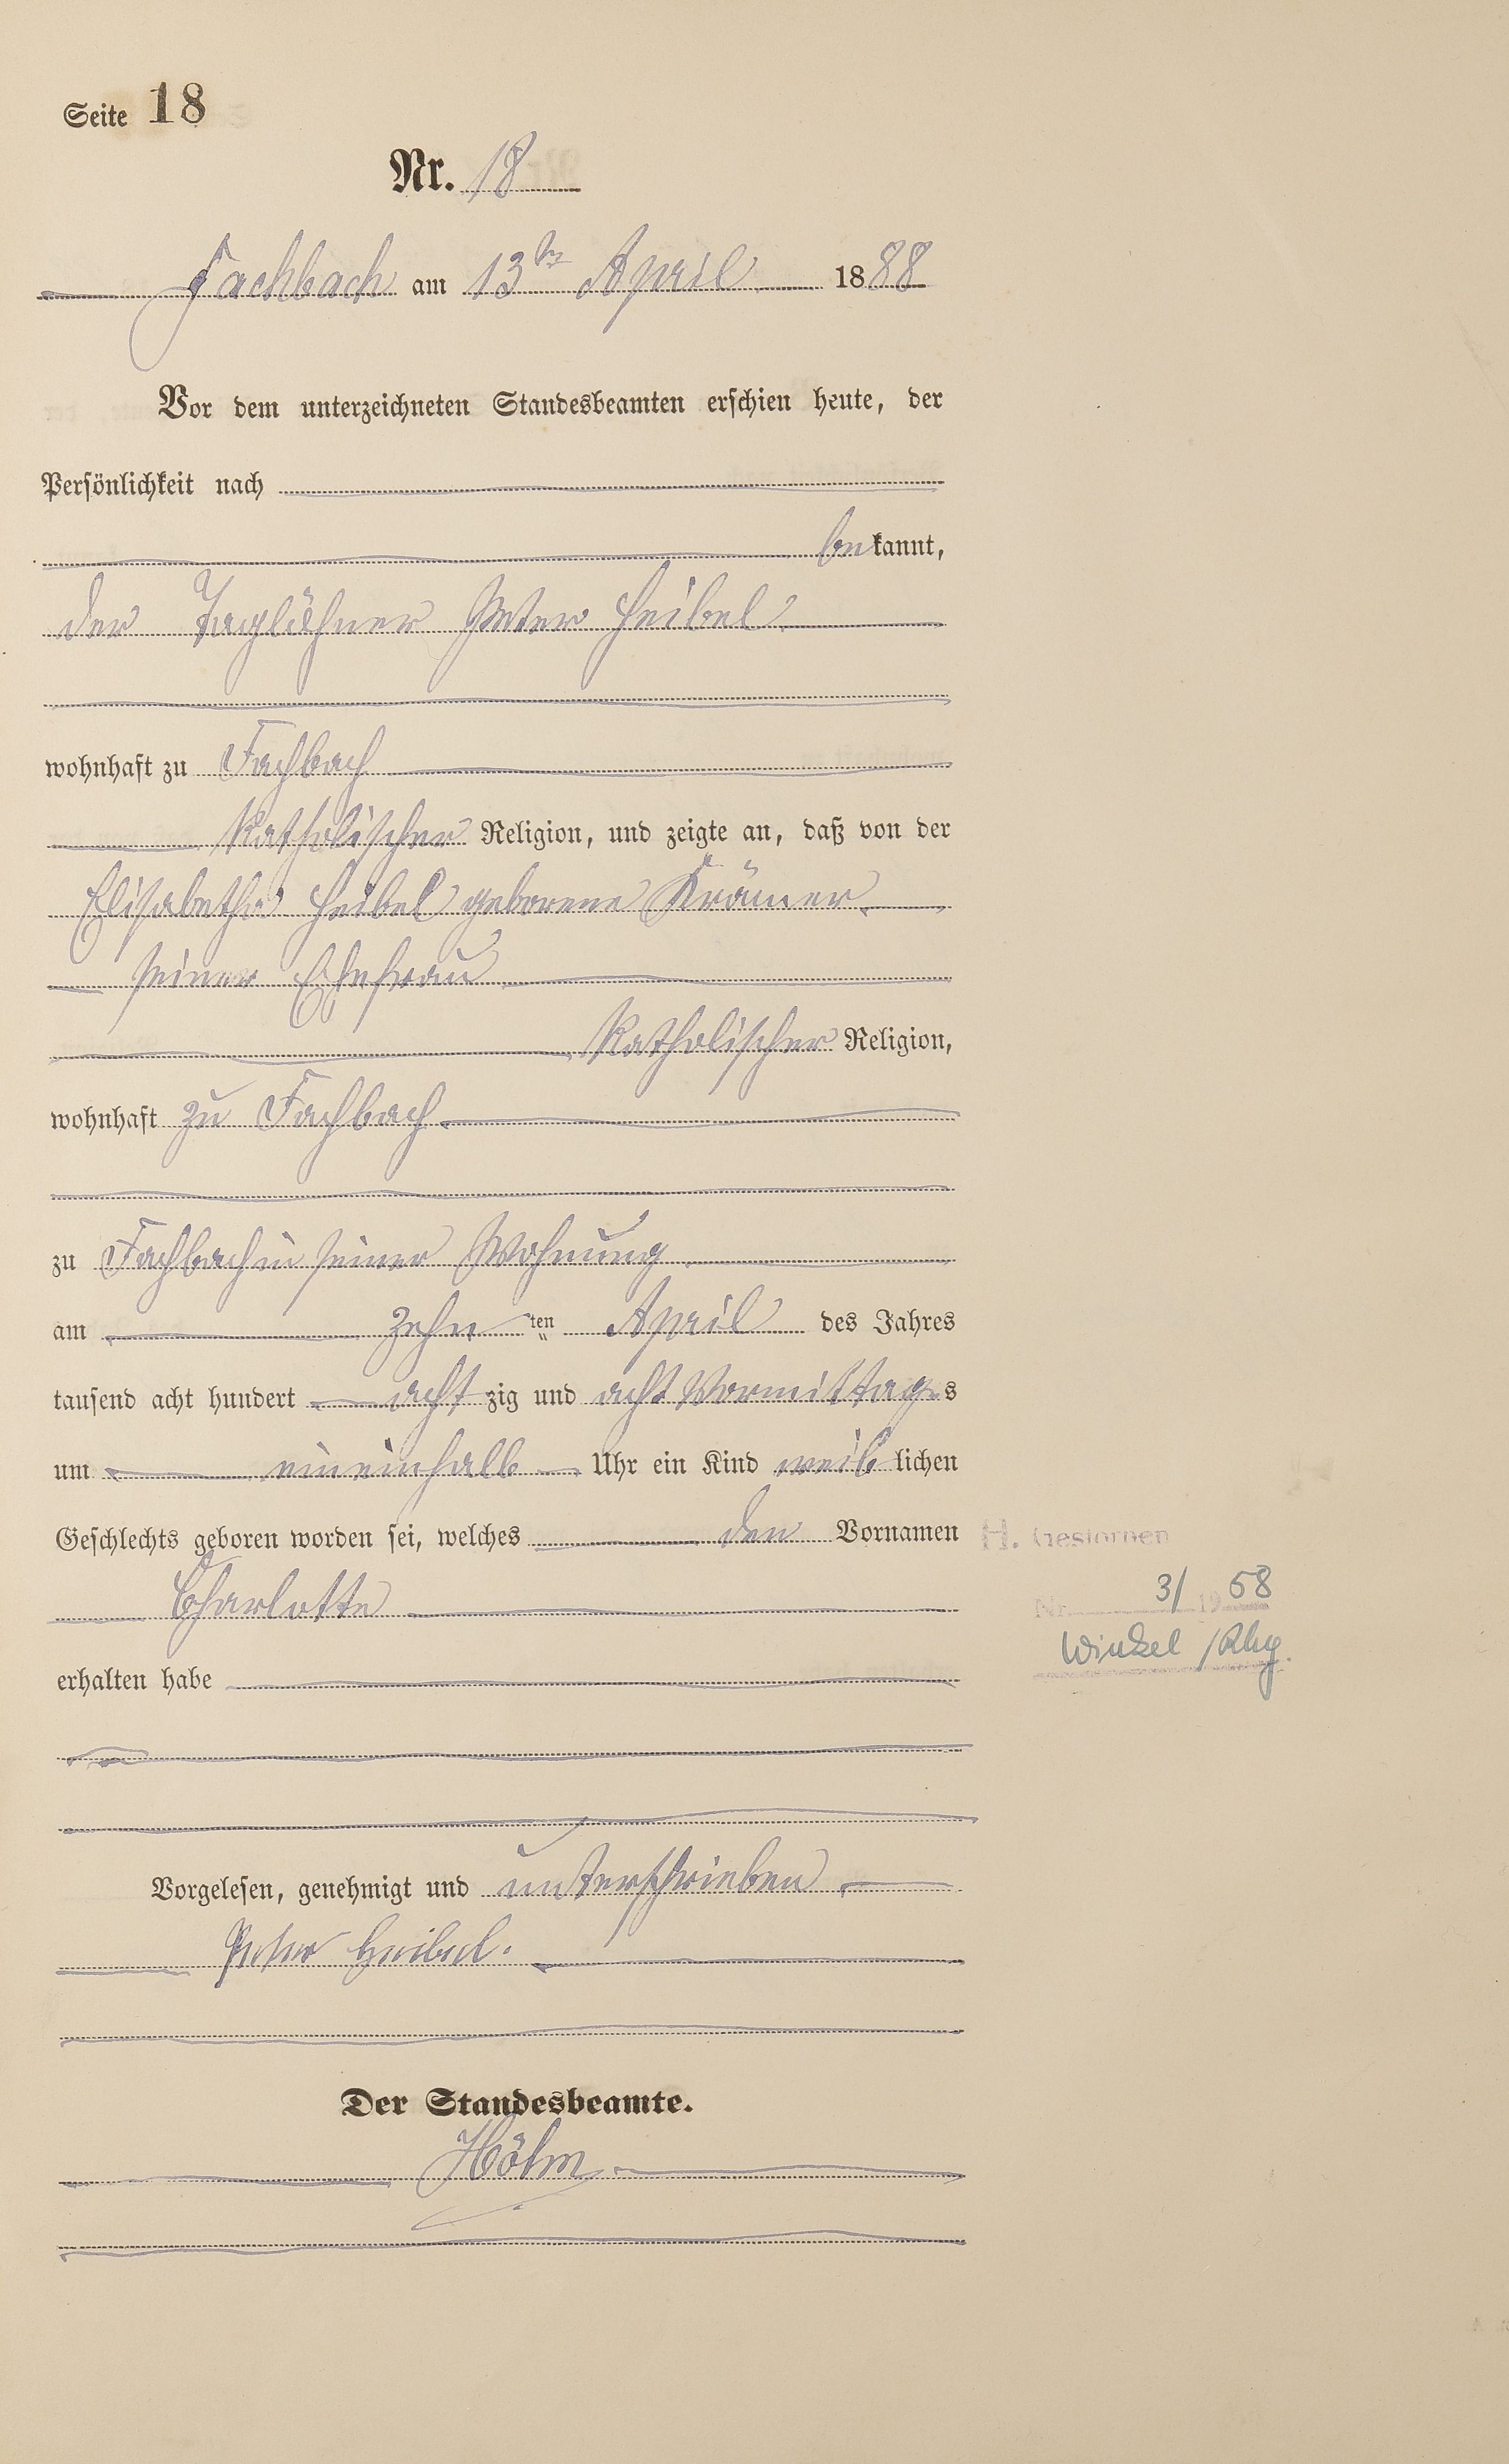 Seite 18
Nr. 18
Fachbach am 13ten April 1888
Vor dem unterzeichneten Standesbeamten erschien heute, der
Persönlichkeit nach
bekannt,
der Taglöhner Peter Heibel
wohnhaft zu Fachbach
Katholischer Religion, und zeigte an, daß von der
Elisabetha Heibel geborene Krämer
seiner Ehefrau
Katholischer Religion,
wohnhaft zu Fachbach
zu Fachbach in seiner Wohnung
am zehnten April des Jahres
tausend acht hundert achtzig und acht Vormittags
um eineinhalb Uhr ein Kind weiblichen
Geschlechts geboren worden sei, welches den Vornamen
H. Gestorben
Charlotte
Nr. 3/1958
Winkel /Rhg.
erhalten habe
Vorgelesen, genehmigt und unterschrieben
Peter Heibel.
Der Standesbeamte.